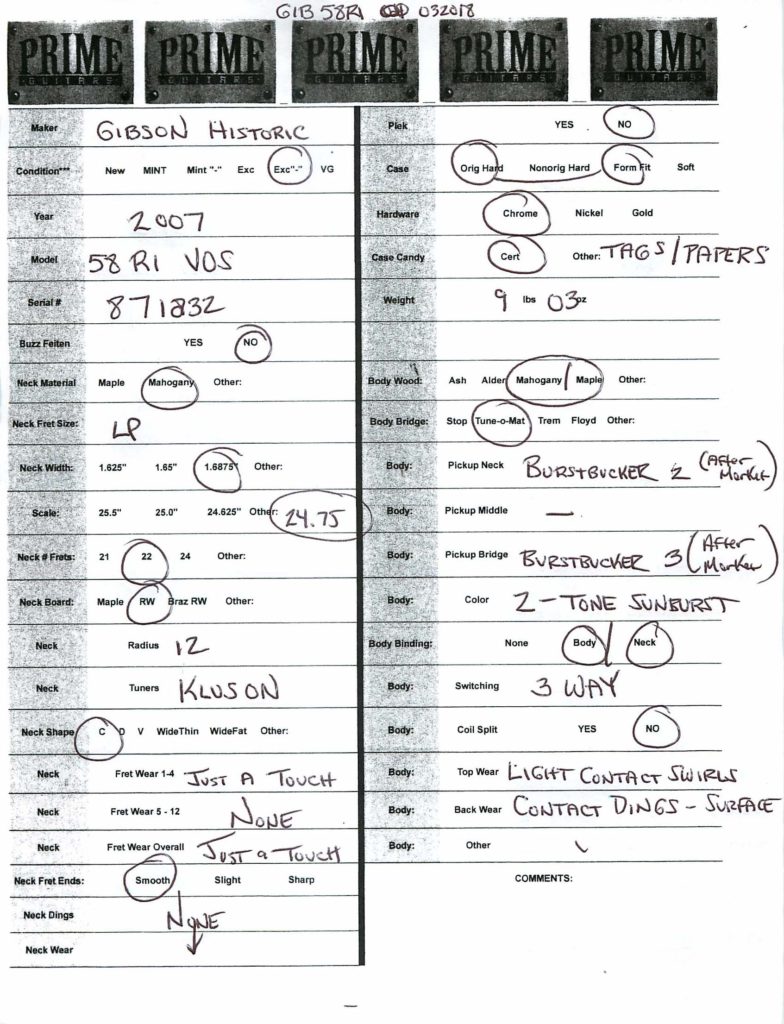 GIB 58RI 032018
PRIME PRIME PRIME PRIME PRIME
GUITARS GUITARS GUITARS GUITARS GUITARS
Maker GIBSON HISTORIC
Condition*** New MINT Mint "-" Exc Exc"-" VG
Year 2007
Model 58 RI VOS
Serial # 871832
Buzz Feiten YES NO
Neck Material Maple Mahogany Other:
Neck Fret Size: LP
Neck Width: 1.625" 1.65" 1.6875" Other:
Scale: 25.5" 25.0" 24.625" Other: 24.75
Neck # Frets: 21 22 24 Other:
Neck Board: Maple RW Braz RW Other:
Neck Radius 12
Neck Tuners KLUSON
Neck Shape C D V WideThin WideFat Other:
Neck Fret Wear 1-4 JUST A TOUCH
Neck Fret Wear 5 - 12 NONE
Neck Fret Wear Overall JUST a TOUCH
Neck Fret Ends: Smooth Slight Sharp
Neck Dings NONE
Neck Wear
Plek YES NO
Case Orig Hard Nonorig Hard Form Fit Soft
Hardware Chrome Nickel Gold
Case Candy Cert Other: TAGS/PAPERS
Weight 9 lbs 03 oz
Body Wood: Ash Alder Mahogany / Maple Other:
Body Bridge: Stop Tune-o-Mat Trem Floyd Other:
Body: Pickup Neck BURSTBUCKER 2 (AFTER MARKET)
Body: Pickup Middle —
Body: Pickup Bridge BURSTBUCKER 3 (AFTER MARKET)
Body: Color 2-TONE SUNBURST
Body Binding: None Body / Neck
Body: Switching 3 WAY
Body: Coil Split YES NO
Body: Top Wear LIGHT CONTACT SWIRLS
Body: Back Wear CONTACT DINGS - SURFACE
Body: Other
COMMENTS: